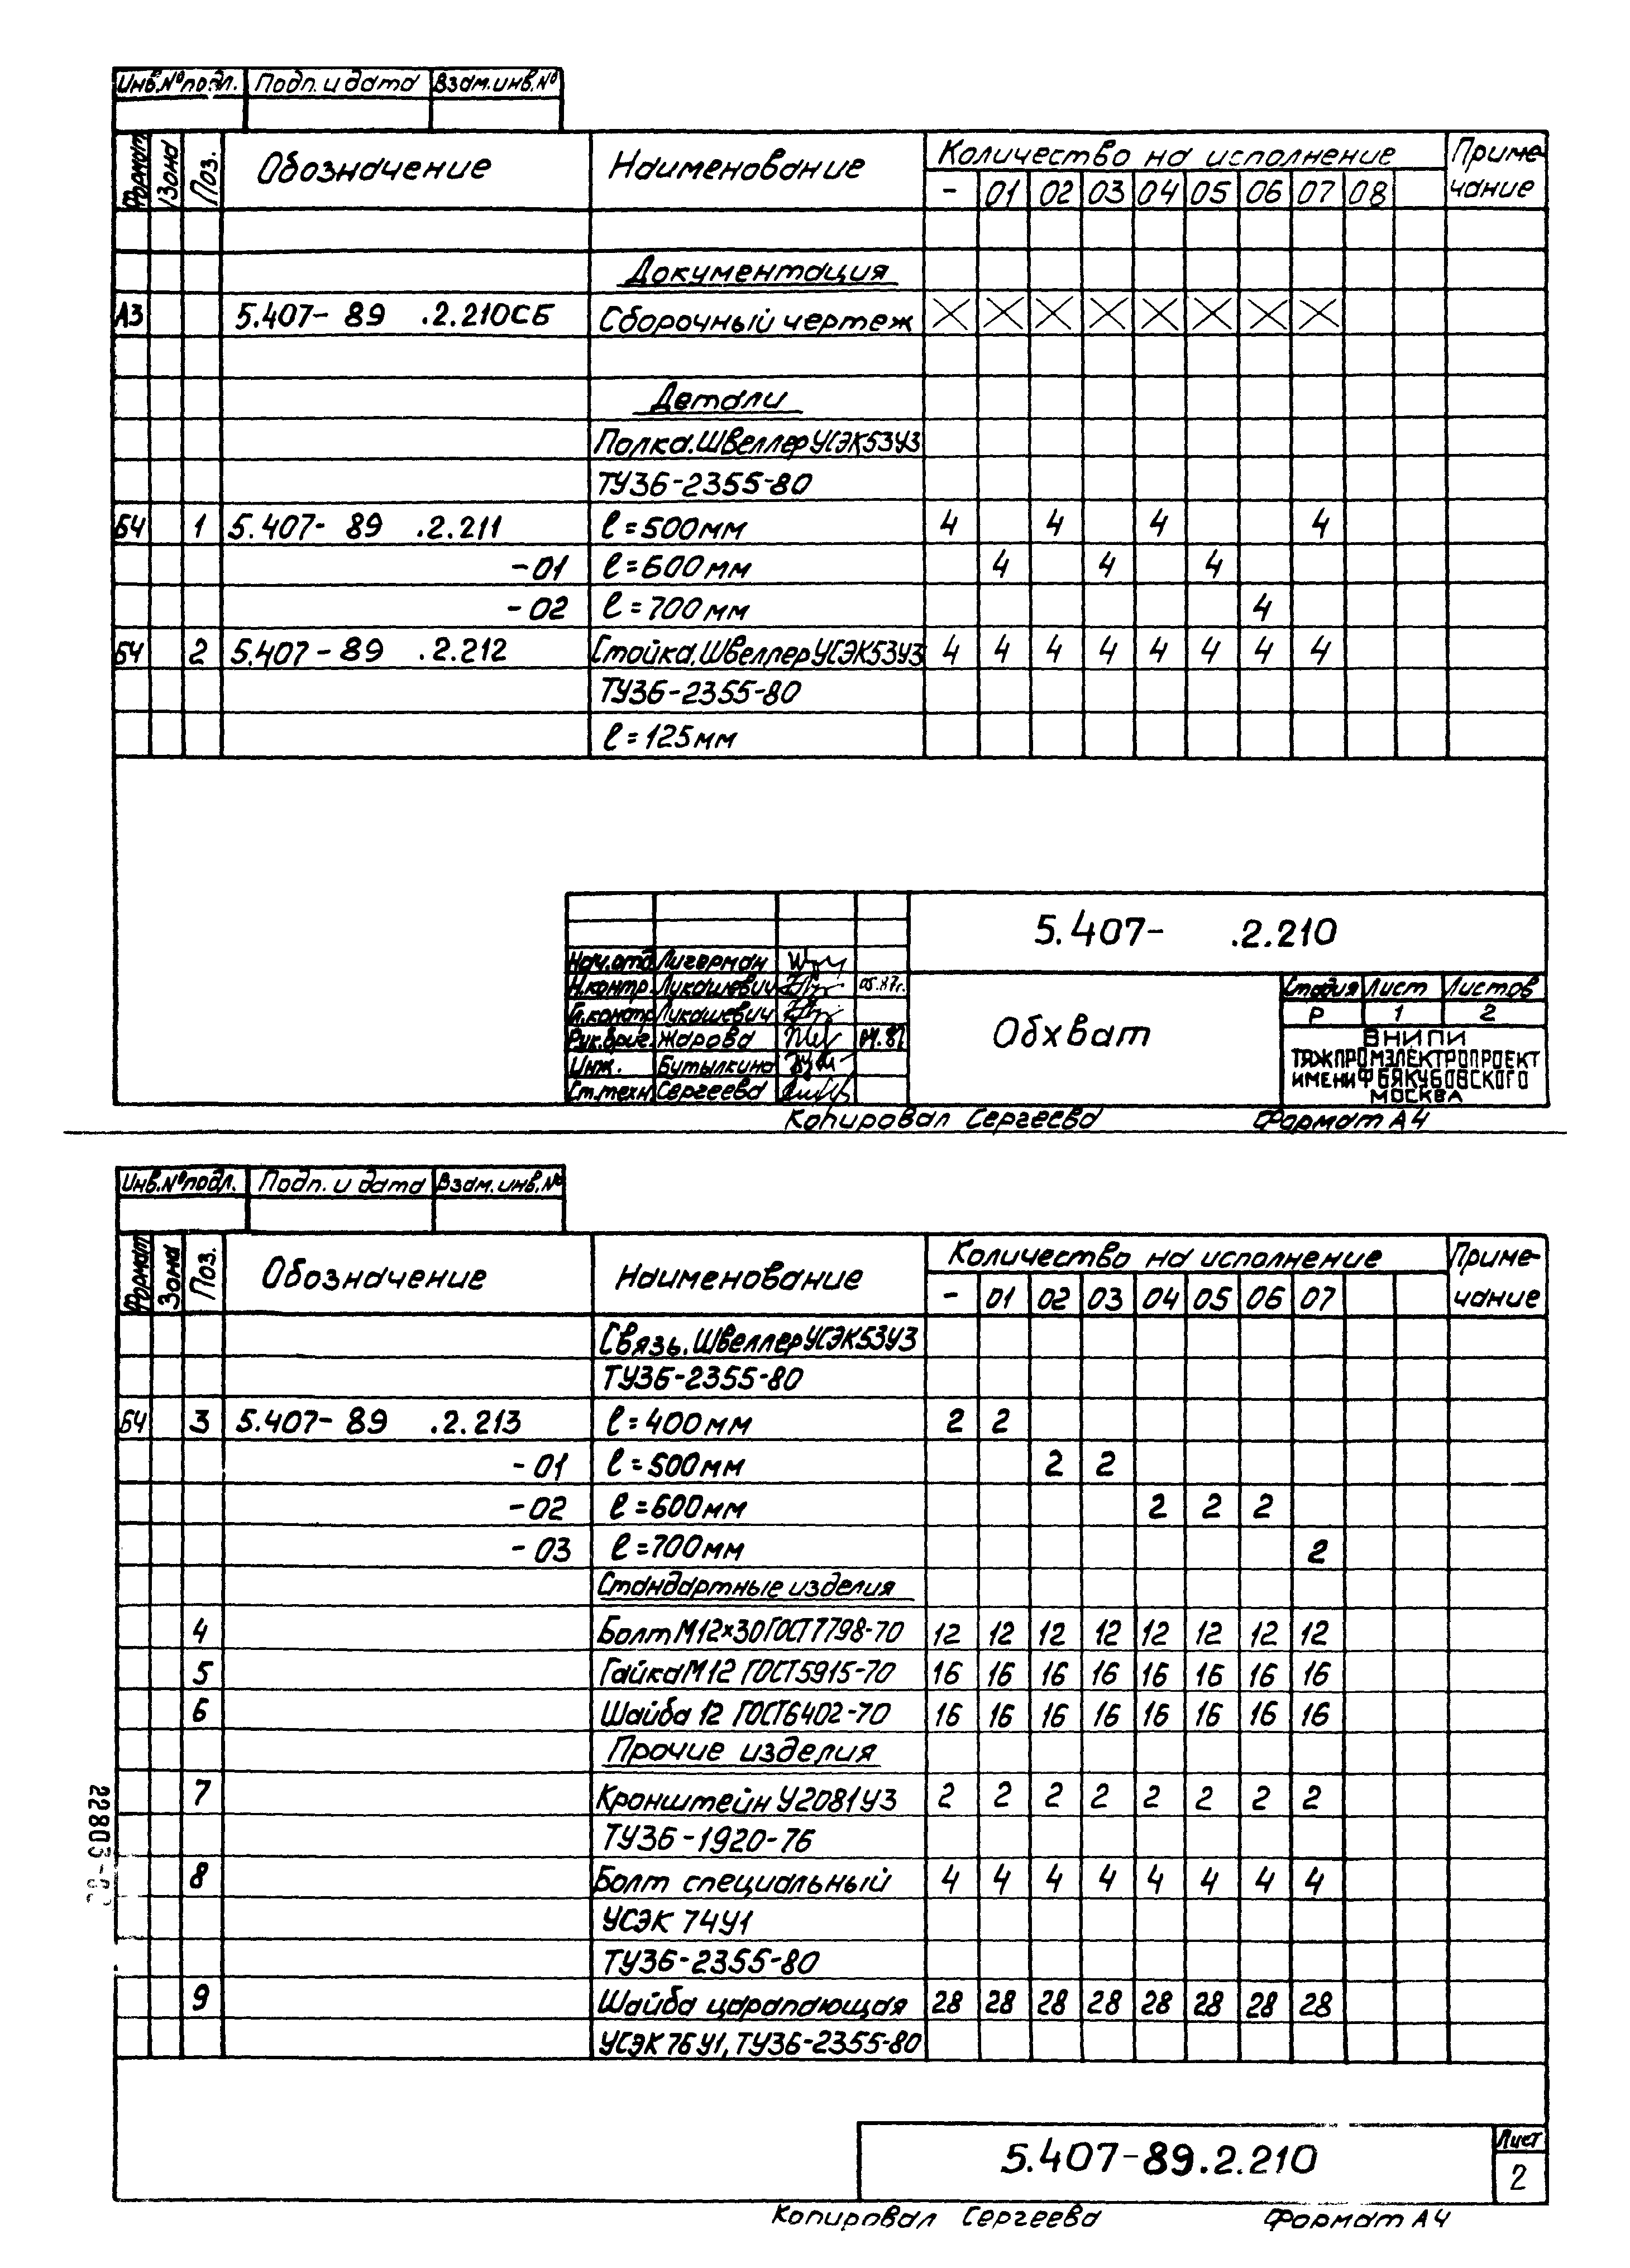 Инв.№ подл. Подп. и дата Взам.инв.№
Формат Зона Поз. Обозначение Наименование Количество на исполнение Примечание
- 01 02 03 04 05 06 07 08
Документация
А3 5.407- 89 .2.210СБ Сборочный чертеж X X X X X X X X
Детали
Полка.ШвеллерУСЭК53У3
ТУ36-2355-80
БЧ 1 5.407- 89 .2.211 ℓ=500мм 4 4 4 4
-01 ℓ=600мм 4 4 4
-02 ℓ=700мм 4
БЧ 2 5.407-89 .2.212 Стойка.ШвеллерУСЭК53У3 4 4 4 4 4 4 4 4
ТУ36-2355-80
ℓ=125мм
5.407- .2.210
Нач.отд Лигерман
Н.контр. Лукашевич 05.87г.
Лукашевич
Рук.бриг. Жарова
Инж. Бутылкина
Ст.техн Сергеева
Обхват
Стадия Лист Листов
Р 1 2
ВНИПИ
ТЯЖПРОМЭЛЕКТРОПРОЕКТ
ИМЕНИ Ф Б ЯКУБОВСКОГО
МОСКВА
Копировал Сергеева Формат А4
Инв.№ подл. Подп. и дата Взам.инв.№
Формат Зона Поз. Обозначение Наименование Количество на исполнение Примечание
- 01 02 03 04 05 06 07
Связь.ШвеллерУСЭК53У3
ТУ36-2355-80
БЧ 3 5.407- 89 .2.213 ℓ=400мм 2 2
-01 ℓ=500мм 2 2
-02 ℓ=600мм 2 2 2
-03 ℓ=700мм 2
Стандартные изделия
4 Болт М12×30 ГОСТ7798-70 12 12 12 12 12 12 12 12
5 Гайка М12 ГОСТ5915-70 16 16 16 16 16 16 16 16
6 Шайба 12 ГОСТ6402-70 16 16 16 16 16 16 16 16
Прочие изделия
7 Кронштейн У2081У3 2 2 2 2 2 2 2 2
ТУ36-1920-76
8 Болт специальный 4 4 4 4 4 4 4 4
УСЭК 74У1
ТУ36-2355-80
9 Шайба царапающая 28 28 28 28 28 28 28 28
УСЭК76У1, ТУ36-2355-80
22803
5.407-89.2.210
Лист
2
Копировал Сергеева Формат А4